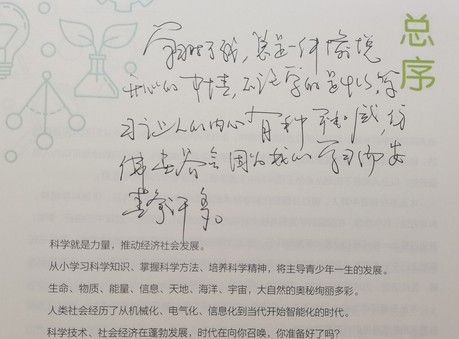 总序
学习对于我，总是一件愉悦
开心的事情，不论学的是什么，学
习让人的内心有种感，仿
佛会因为我的学习而
许多。
科学就是力量，推动经济社会发展。
从小学习科学知识、掌握科学方法、培养科学精神，将主导青少年一生的发展。
生命、物质、能量、信息、天地、海洋、宇宙，大自然的奥秘绚丽多彩。
人类社会经历了从机械化、电气化、信息化到当代开始智能化的时代。
科学技术、社会经济在蓬勃发展，时代在向你召唤，你准备好了吗？